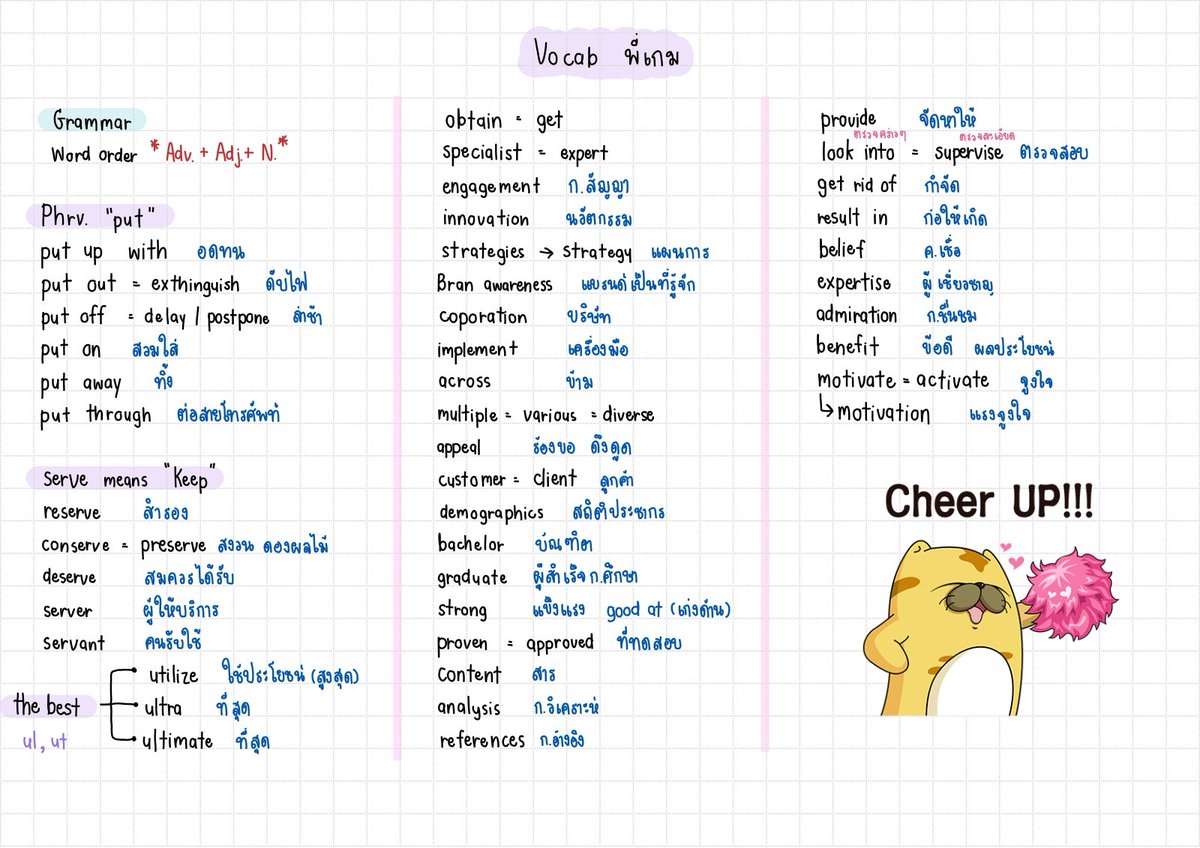 Vocab พี่เกม
Grammar
Word order *Adv. + Adj. + N.*
Phrv. "put"
put up with อดทน
put out = exthinguish ดับไฟ
put off = delay / postpone ล่าช้า
put on สวมใส่
put away ทิ้ง
put through ต่อสายโทรศัพท์
serve means "Keep"
reserve สำรอง
conserve = preserve สงวน ดองผลไม้
deserve สมควรได้รับ
server ผู้ให้บริการ
servant คนรับใช้
utilize ใช้ประโยชน์ (สูงสุด)
the best
ultra ที่สุด
ul, ut
ultimate ที่สุด
obtain = get
specialist = expert
engagement ก.สัญญา
innovation นวัตกรรม
strategies → strategy แผนการ
Bran awareness แบรนด์เป็นที่รู้จัก
coporation บริษัท
implement เครื่องมือ
across ข้าม
multiple = various = diverse
appeal ร้องขอ ดึงดูด
customer = client ลูกค้า
demographics สถิติประชากร
bachelor บัณฑิต
graduate ผู้สำเร็จก.ศึกษา
strong แข็งแรง good at (เก่งด้าน)
proven = approved ที่ทดสอบ
content สาร
analysis ก.วิเคราะห์
references ก.อ้างอิง
provide จัดหาให้
ตรวจคร่าวๆ ตรวจละเอียด
look into = supervise ตรวจสอบ
get rid of กำจัด
result in ก่อให้เกิด
belief ค.เชื่อ
expertise ผู้เชี่ยวชาญ
admiration ก.ชื่นชม
benefit ข้อดี ผลประโยชน์
motivate = activate จูงใจ
↳ motivation แรงจูงใจ
Cheer UP!!!